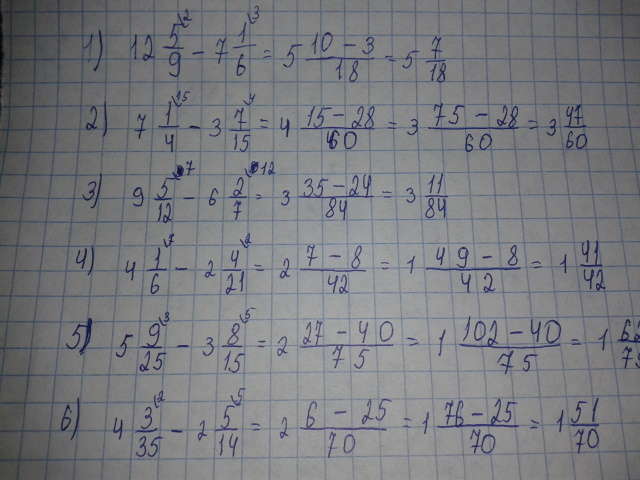 1) 12 5/9 \2 - 7 1/6 \3 = 5 (10 - 3)/18 = 5 7/18
2) 7 1/4 \15 - 3 7/15 \4 = 4 (15 - 28)/60 = 3 (75 - 28)/60 = 3 47/60
3) 9 5/12 \7 - 6 2/7 \12 = 3 (35 - 24)/84 = 3 11/84
4) 4 1/6 \7 - 2 4/21 \2 = 2 (7 - 8)/42 = 1 (49 - 8)/42 = 1 41/42
5) 5 9/25 \3 - 3 8/15 \5 = 2 (27 - 40)/75 = 1 (102 - 40)/75 = 1 62/75
6) 4 3/35 \2 - 2 5/14 \5 = 2 (6 - 25)/70 = 1 (76 - 25)/70 = 1 51/70